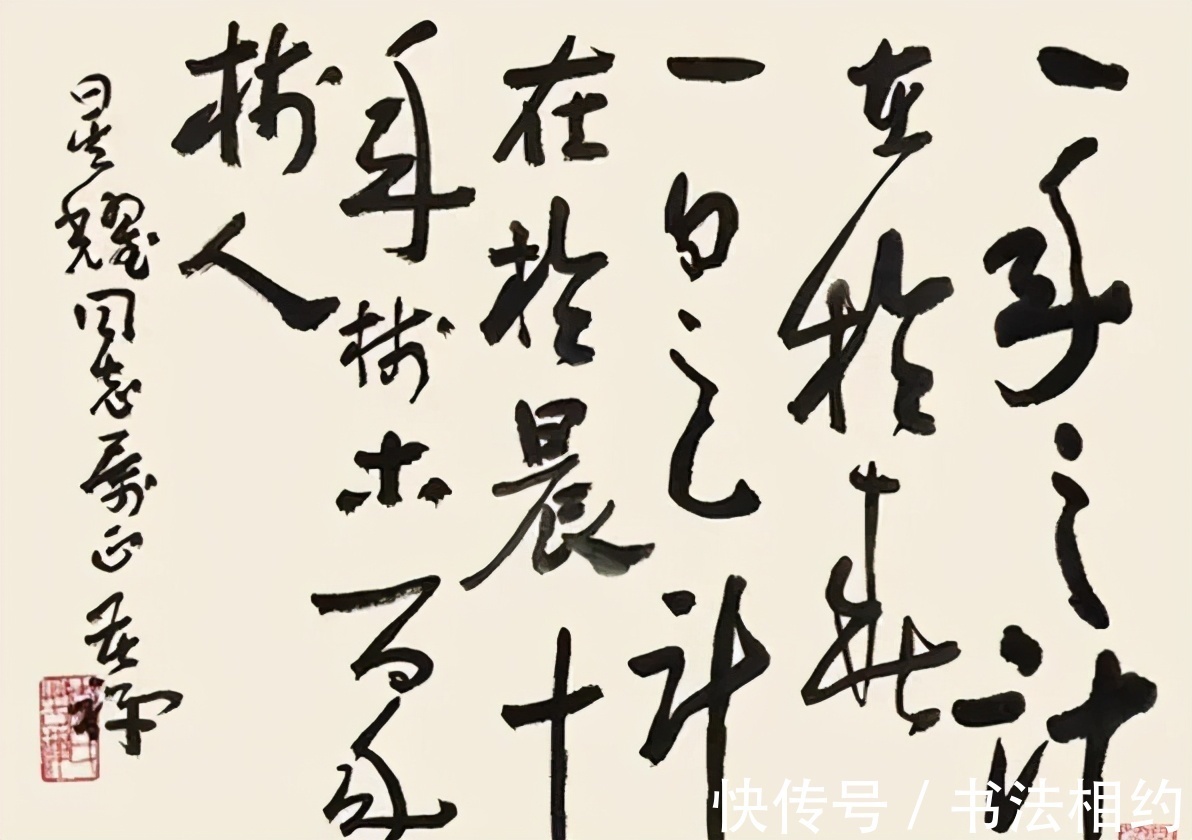 一年之计
在於春
一日之计
在於晨十
年树木百年
树人
耀同志属正
快传号 / 书法相约